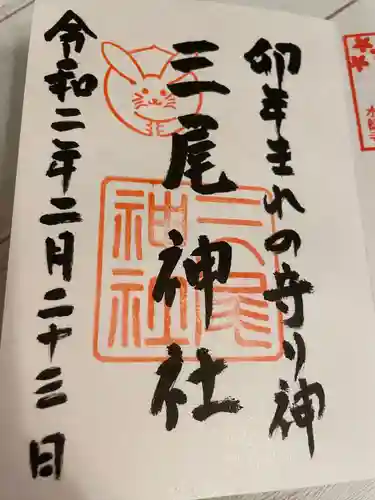 卯年まれの守り神
三尾神社
令和二年二月二十三日
三尾神社